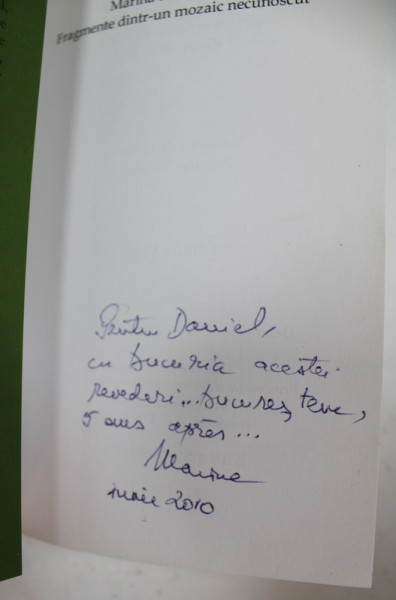 Marina
Fragmente dintr-un mozaic necunoscut
Pentru Daniel,
cu bucuria acestei
revederi... bucureștene,
5 ans après...
Marina
2010